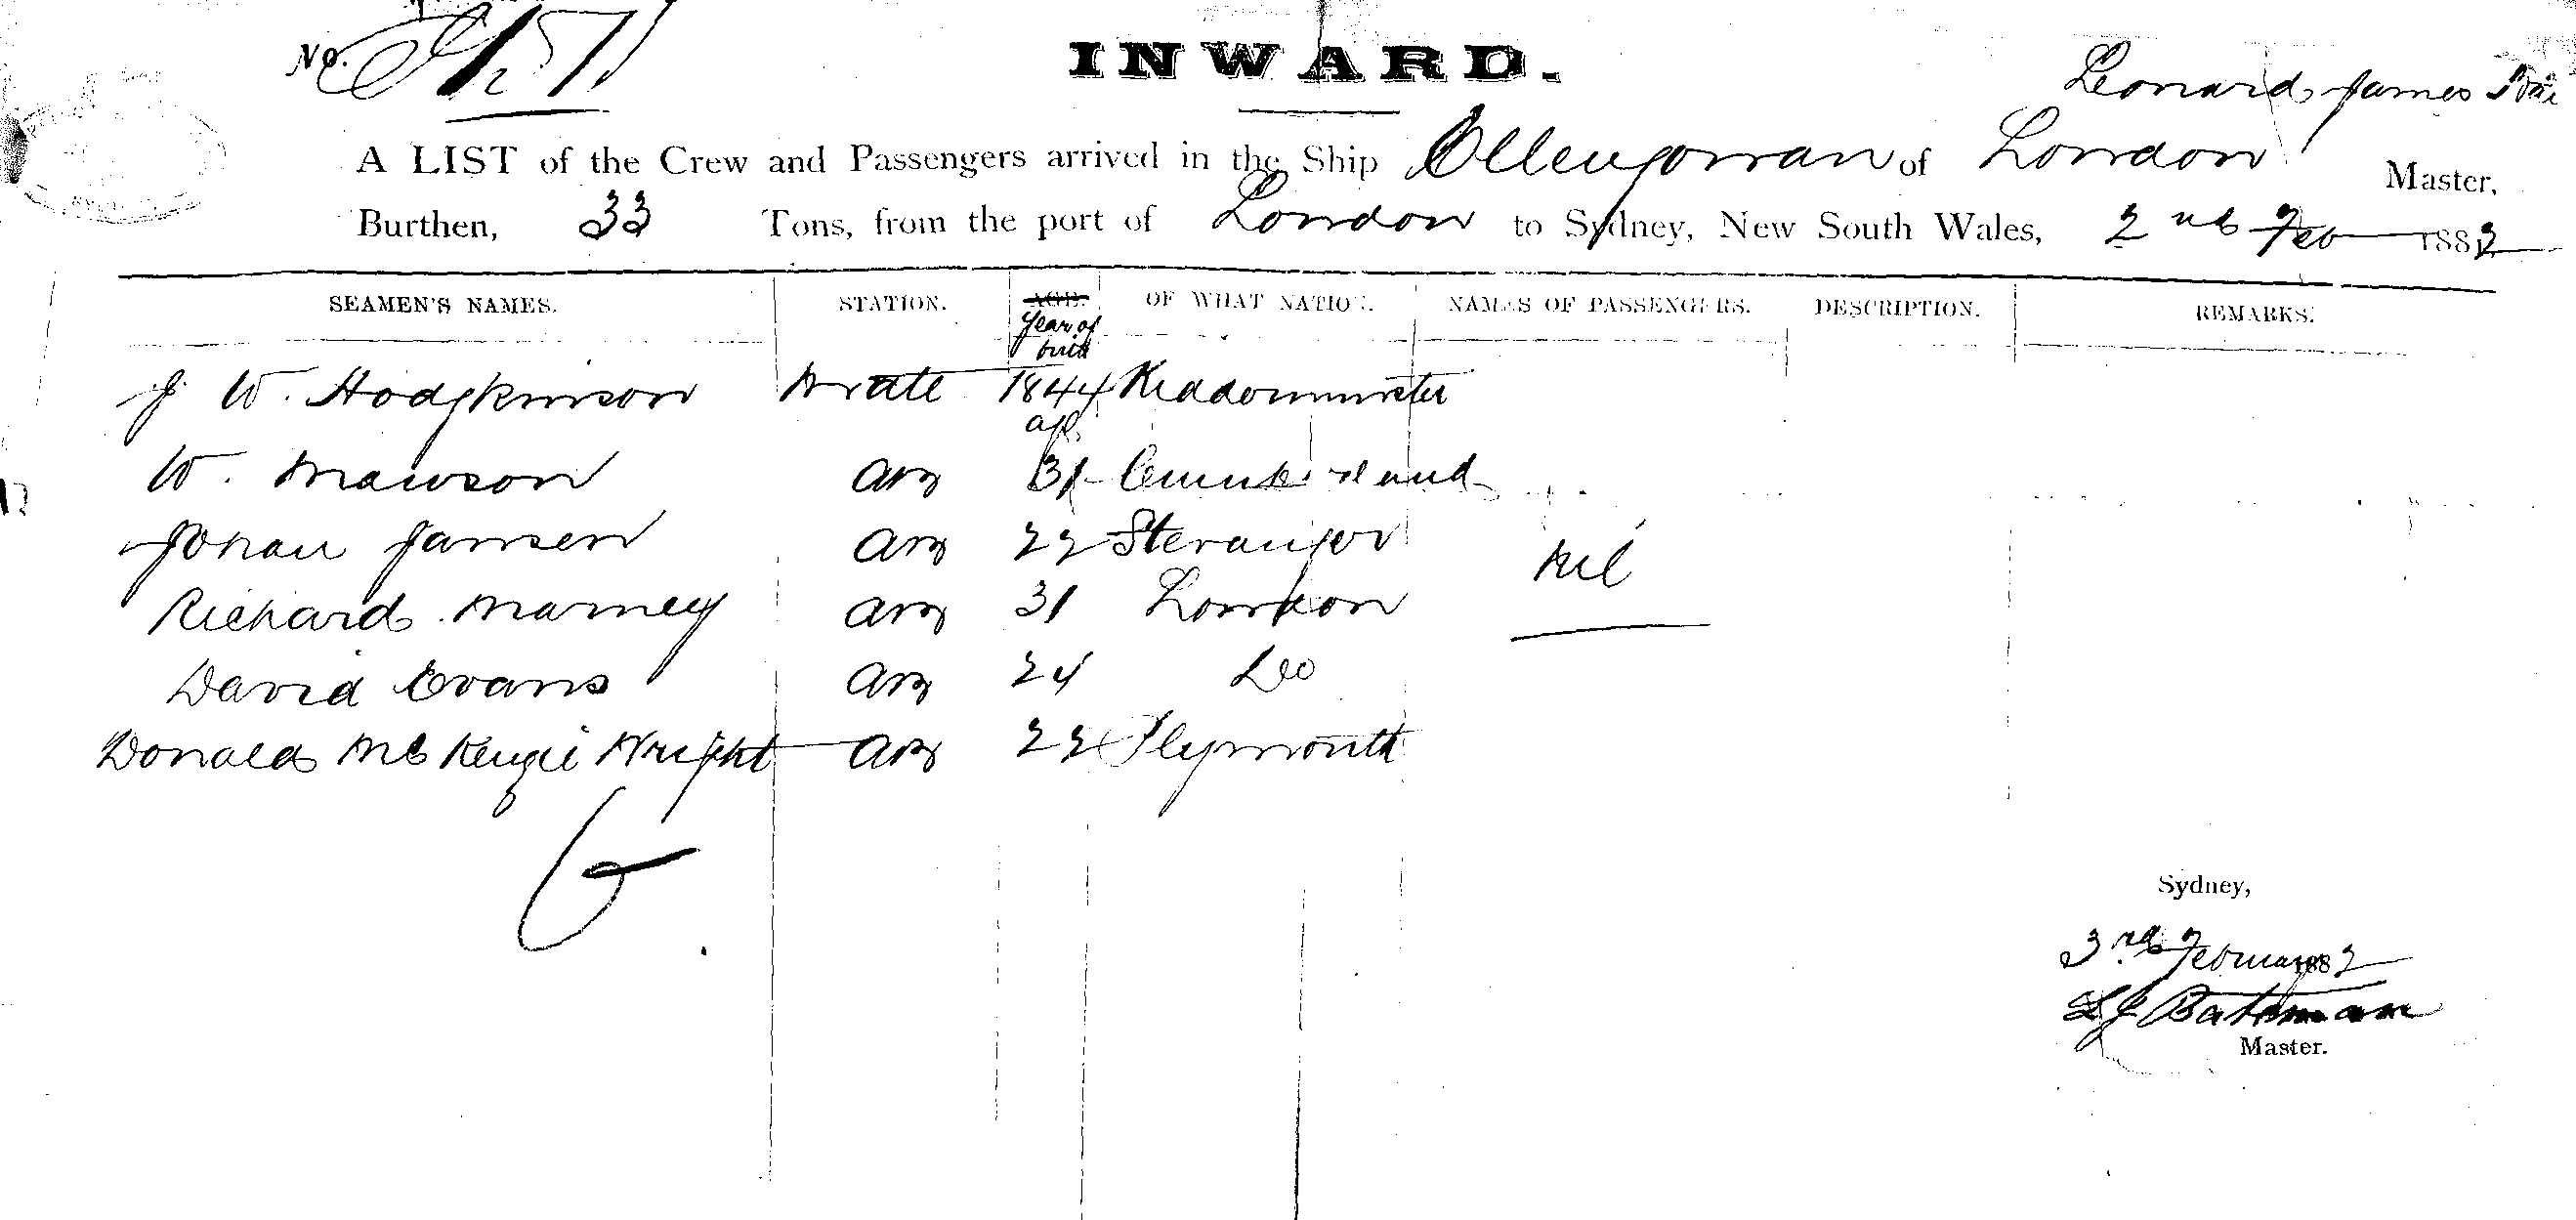 No.
INWARD.
Leonard James
A LIST of the Crew and Passengers arrived in the Ship Ollengorran of London Master,
Burthen, 33 Tons, from the port of London to Sydney, New South Wales, 2nd Feb 1882
SEAMEN'S NAMES. STATION. AGE. OF WHAT NATION. NAMES OF PASSENGERS. DESCRIPTION. REMARKS.
Year of
birth
J W. Hodgkinson Mate 1844 Kiddominster
age
W. Mawson AB 31 Cumberland
Johan Jansen AB 22 Stevanger
Nil
Richard Marney AB 31 London
David Evans AB 24 Do
Donald McKenzie Wright AB 22 Plymouth
6
Sydney,
3rd February 1882
LJ Bateman
Master.